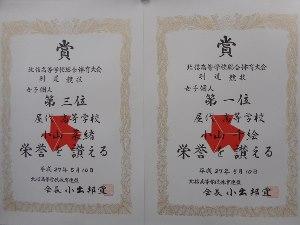 賞
北信高等学校総合体育大会
剣道競技
女子個人
第三位
屋代 高等学校
小山 緒
栄誉を讃える
平成27年5月10日
北信高等学校体育連盟
会長 小出邦
賞
北信高等学校総合体育大会
剣道競技
女子個人
第一位
屋代 高等学校
小山千絵
栄誉を讃える
平成27年5月10日
北信高等学校体育連盟
会長 小出邦